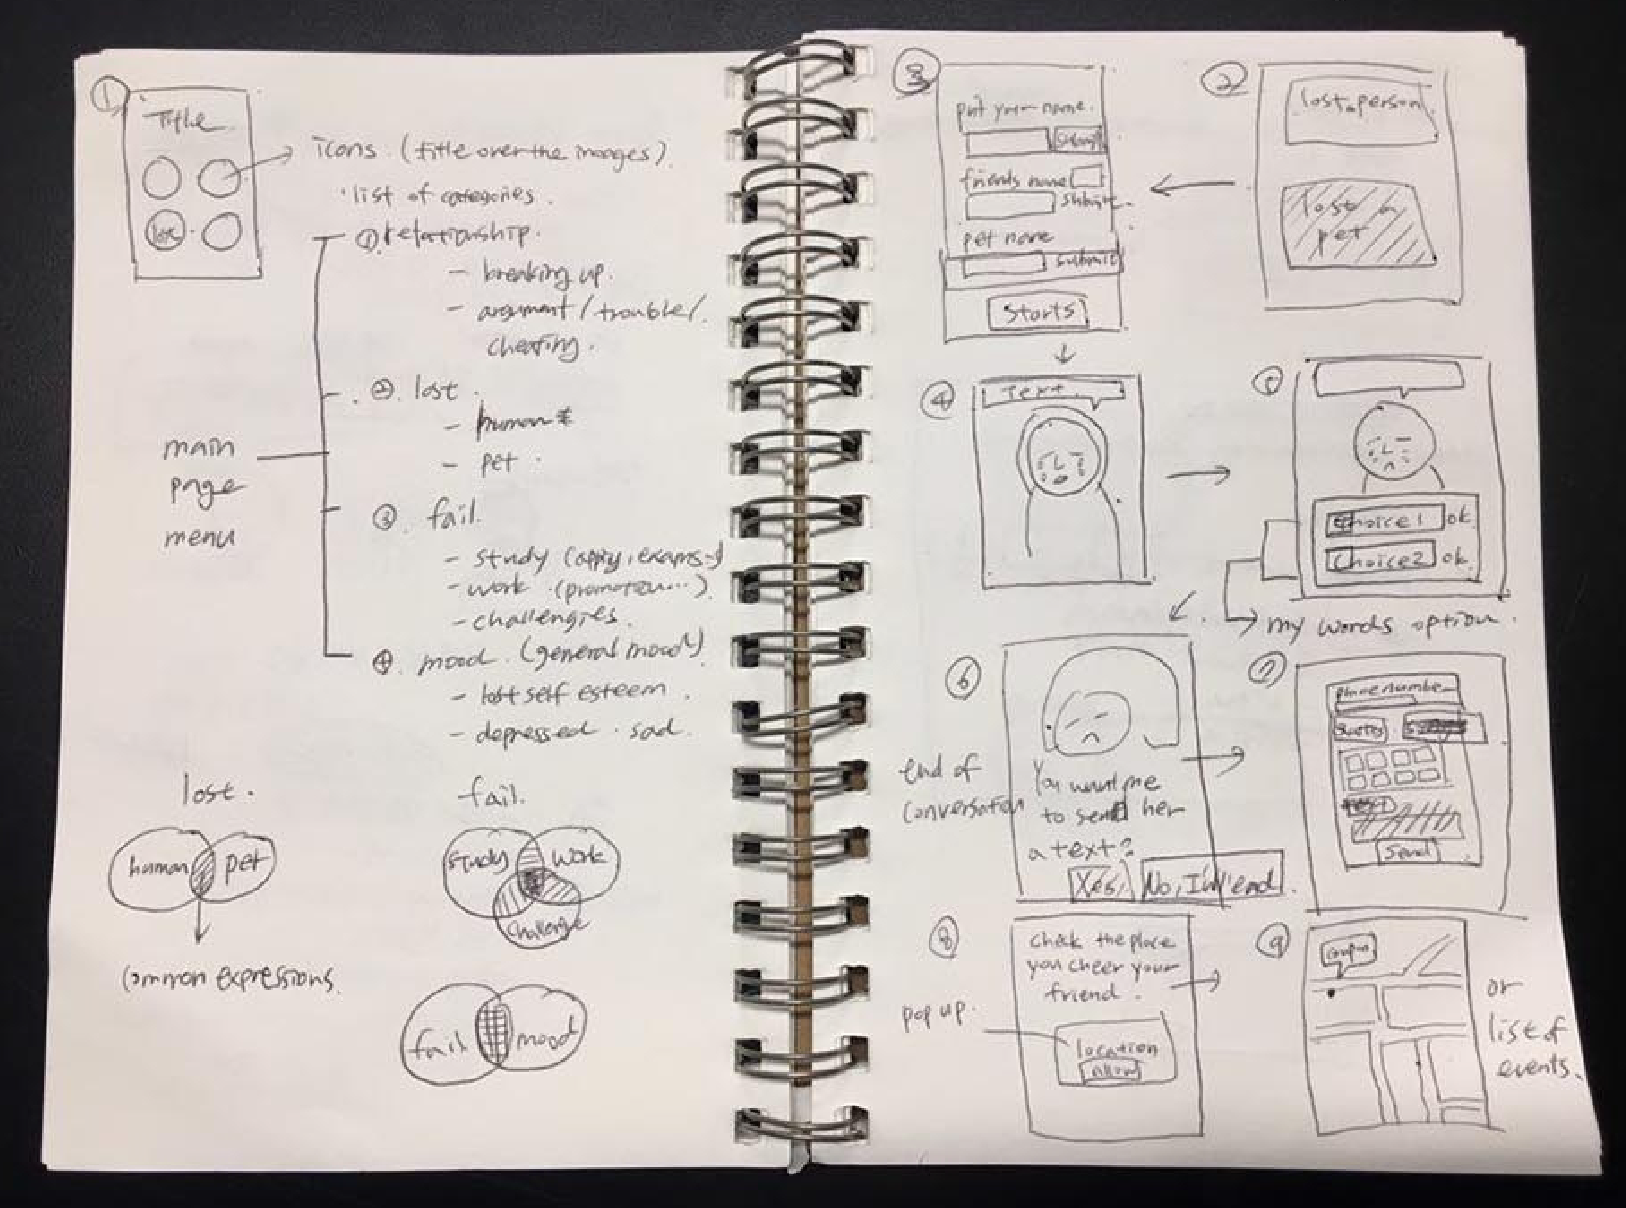 ①
Title
lost
icons (title over the images)
· list of categories.
① relationship.
- breaking up.
- argument / trouble /
cheating.
② lost.
- human
- pet
③ fail.
- study (apply, exams-)
- work (promotion...)
- challengies.
④ mood (general mood)
- lost self esteem.
- depressed · sad
main
page
menu
lost.
human
pet
common expressions.
fail.
study
work
challenge
fail
mood
②
lost a person
lost a
pet
③
put your name.
submit
friends name
submit
pet name
submit
starts
④
Text
⑤
choice 1 ok
choice 2 ok
my words option.
⑥
end of
conversation
You want me
to send her
a text?
Yes,
No, I'll end.
⑦
phone number
quotes
text
send
⑧
check the place
you cheer your
friend.
pop up.
location
allow
⑨
coupon
or
list of
events.